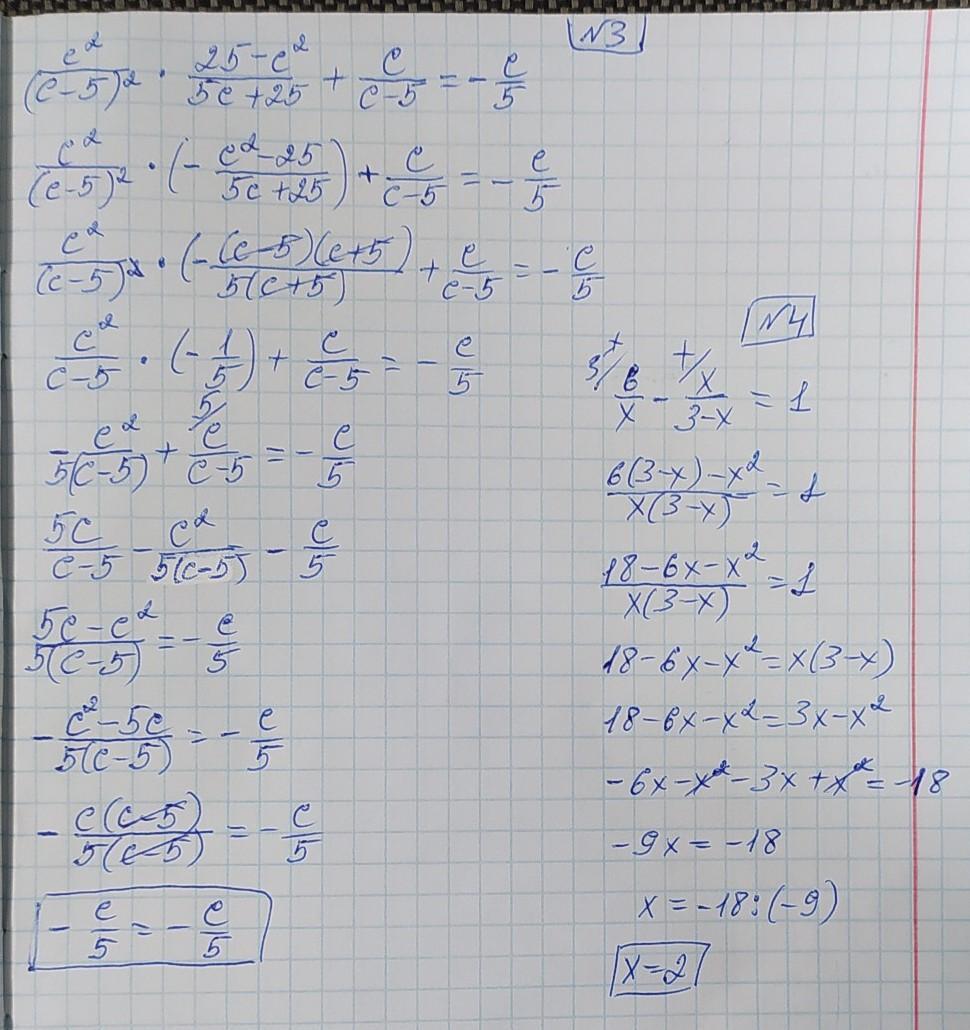 №3
c²/(c-5)² · (25-c²)/(5c+25) + c/(c-5) = - c/5
c²/(c-5)² · (- (c²-25)/(5c+25)) + c/(c-5) = - c/5
c²/(c-5)² · (- (c-5)(c+5)/5(c+5)) + c/(c-5) = - c/5
c²/(c-5) · (- 1/5) + c/(c-5) = - c/5
- c²/5(c-5) + 5/ c/(c-5) = - c/5
5c/(c-5) - c²/5(c-5) - c/5
(5c-c²)/5(c-5) = - c/5
- (c²-5c)/5(c-5) = - c/5
- c(c-5)/5(c-5) = - c/5
- c/5 = - c/5
№4
6/x - x/(3-x) = 1
(6(3-x)-x²)/x(3-x) = 1
(18-6x-x²)/x(3-x) = 1
18-6x-x²=x(3-x)
18-6x-x²=3x-x²
-6x-x²-3x+x²=-18
-9x=-18
x=-18:(-9)
x=2